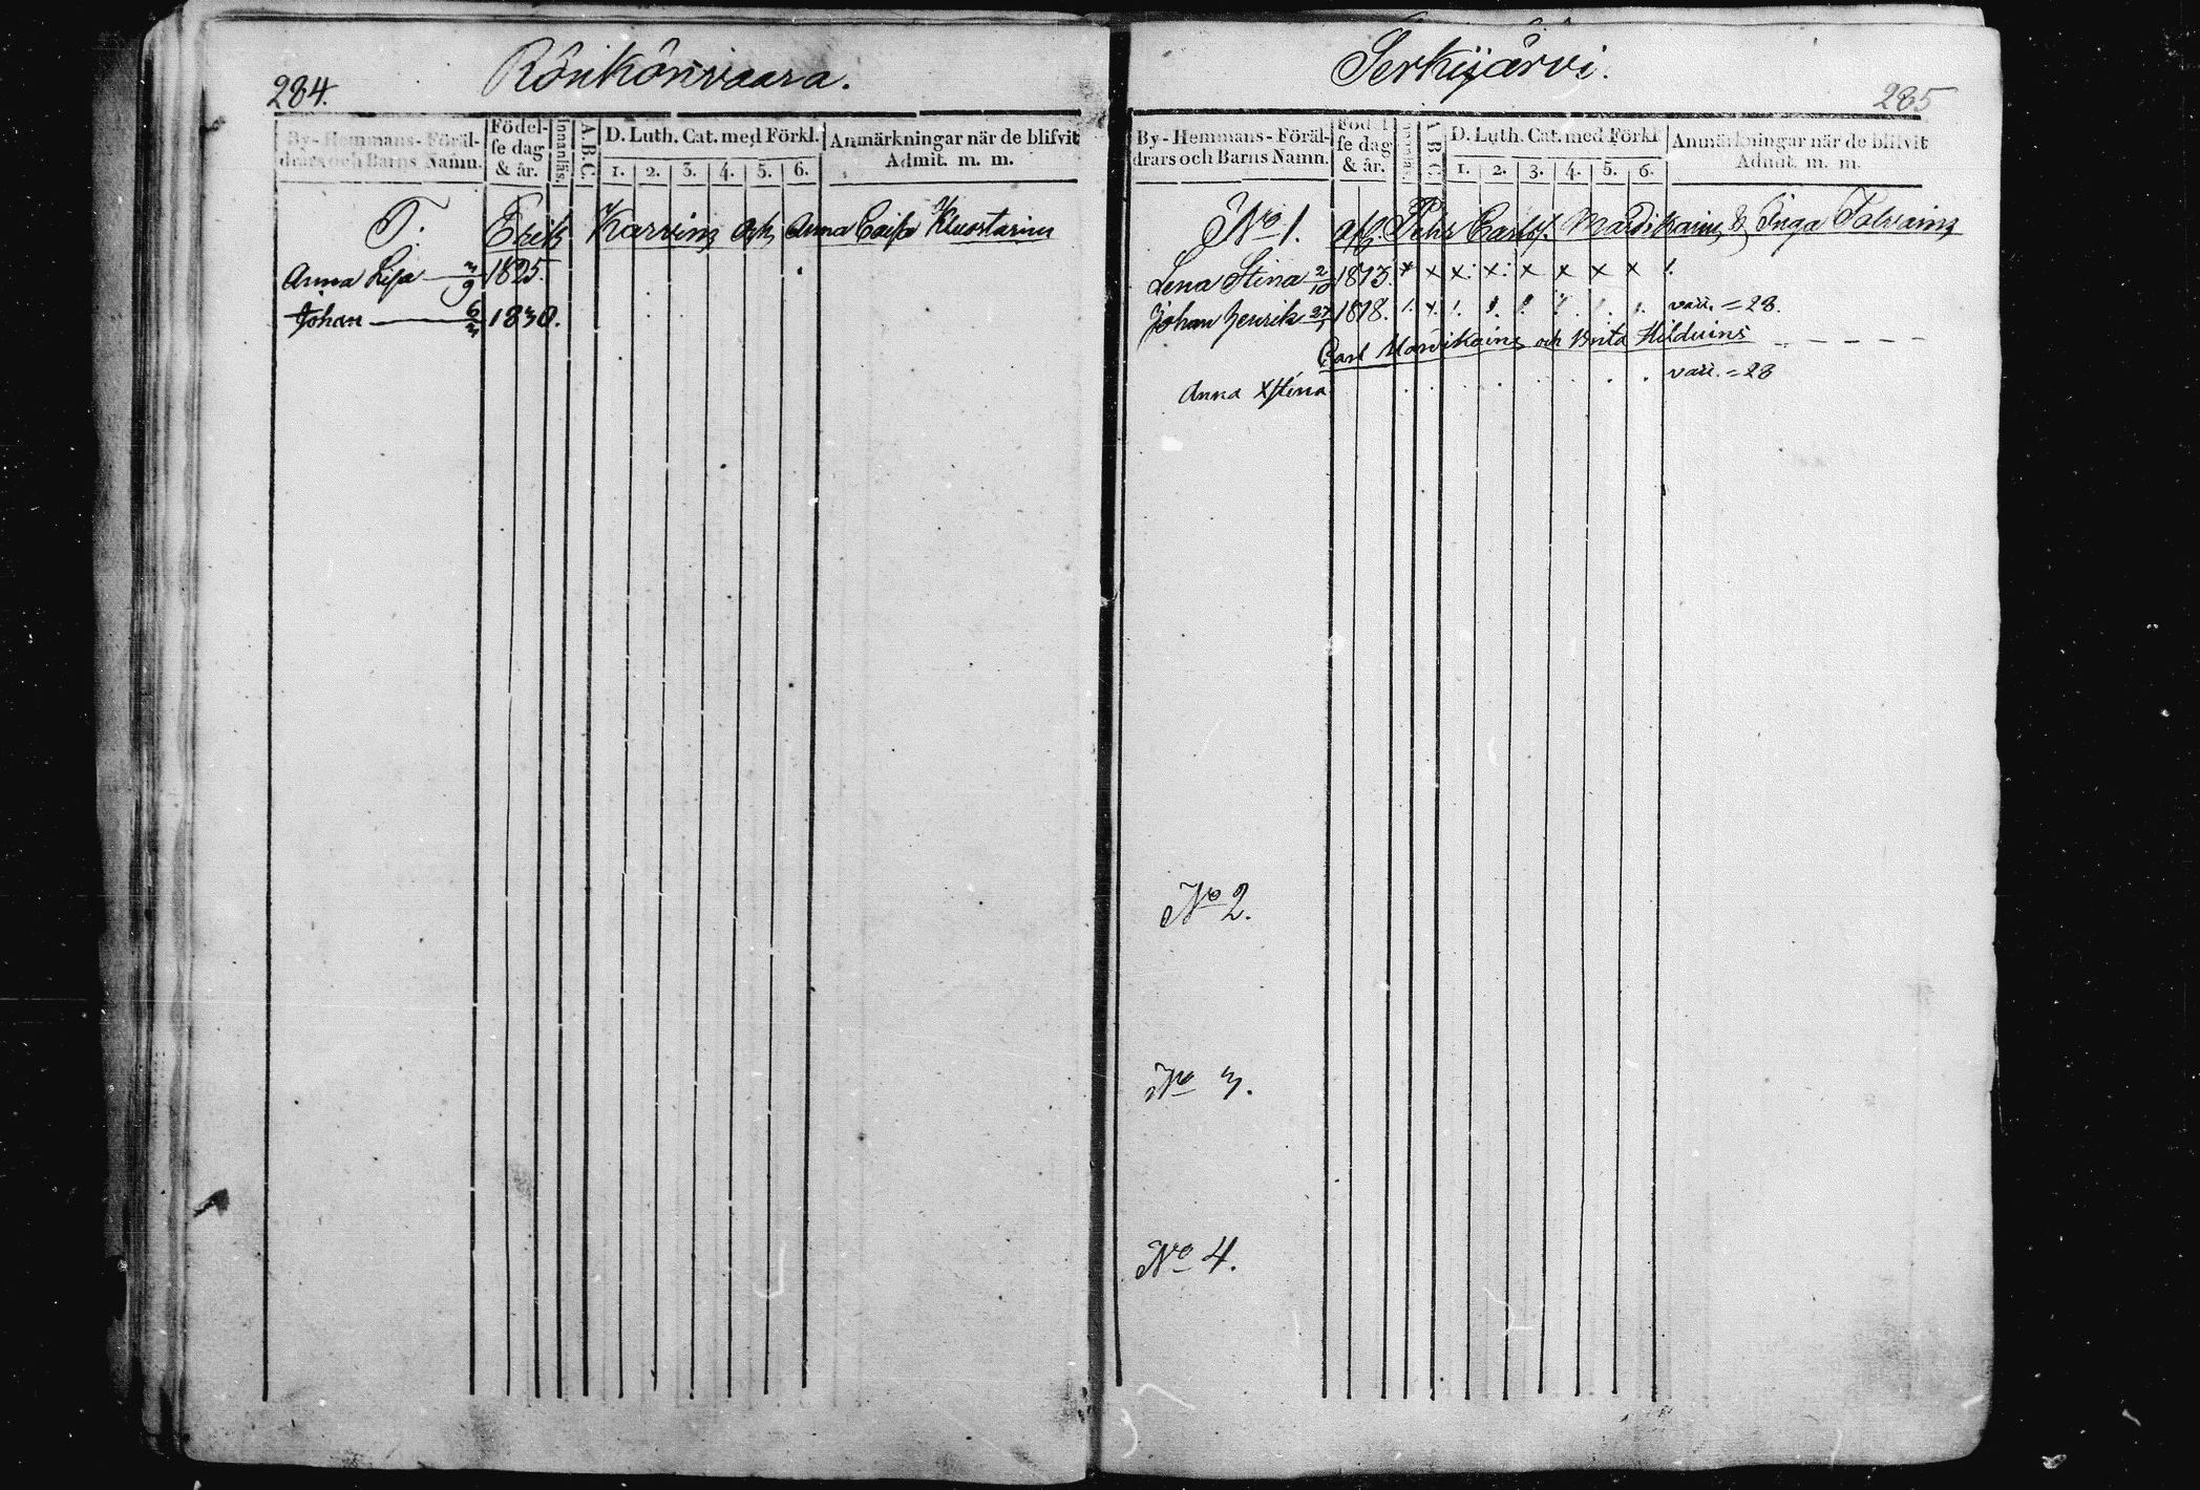 284.
Rönkönvaara.
By- Hemmans- Föräl-
drars och Barns Namn.
Födel-
se dag
& år.
Innanläs.
A.B.C.
D. Luth. Cat. med Förkl.
1. 2. 3. 4. 5. 6.
Anmärkningar när de blifvit
Admit. m. m.
T. Erik Karvin och Anna Caisa
Anna Lisa 3/9 1825.
Johan 6/3 1830.
Serkijärvi.
285
By- Hemmans- Föräl-
drars och Barns Namn.
Födel
se dag
& år.
A B C
D. Luth. Cat. med Förkl
1. 2. 3. 4. 5. 6.
Anmärkningar när de blifvit
Admit. m. m.
No 1. afl. Pehr Carls. & Inga
Lena Stina 2/10 1813. x x x: x: x x x x !.
Johan Henrik 27/1 1818. vaii. = 28.
Carl och Brita
Anna Xstina vaii. = 28
No 2.
No 3.
No 4.